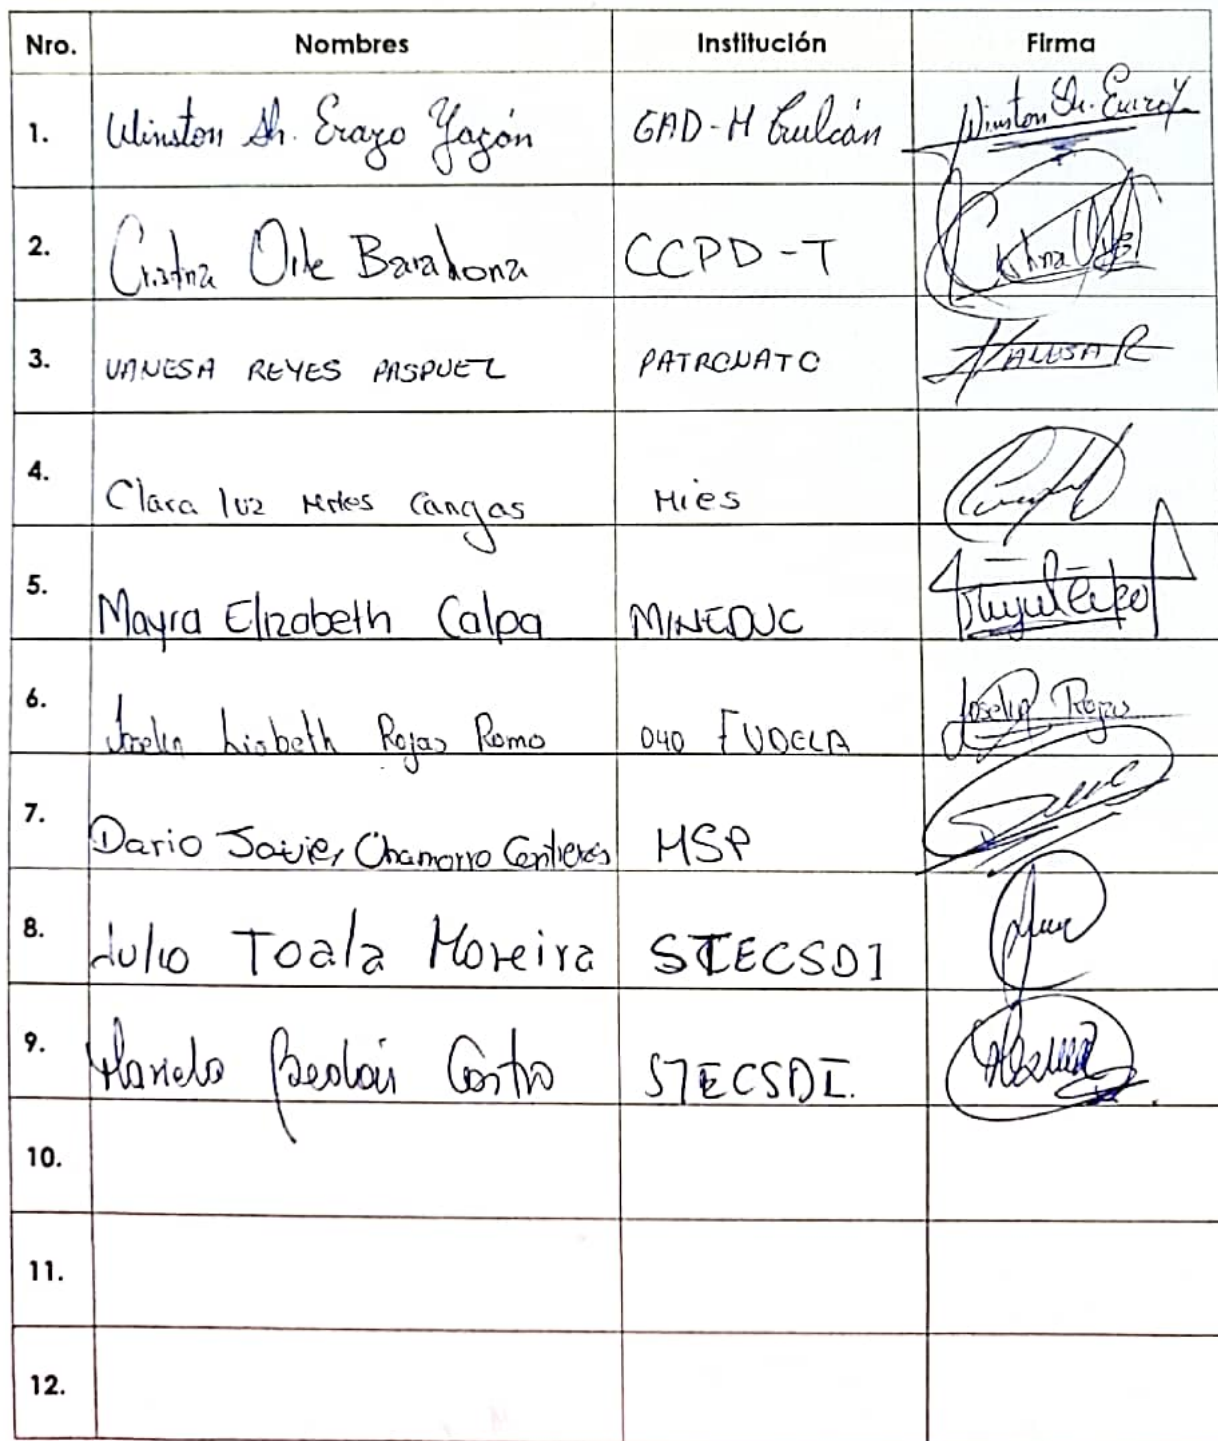 Nro. Nombres Institución Firma
1. Winston Sh. Erazo Yazón GAD-M Tulcán Winston Sh. Erazo Y
2. Cristina Oñte Barahona CCPD-T Cristina
3. VANESA REYES PASPUEZ PATRONATO VANESA R
4. Clara luz Cangas Mies
5. Mayra Elizabeth Calpa MINEDUC
6. Joselin Lisbeth Rojas Romo 040 FUDELA Joselin Rojas
7. Dario Javier Chamorro Contreras MSP
8. Julio Toala Moreira STECSDI
9. Mariela Castro STECSDI.
10.
11.
12.